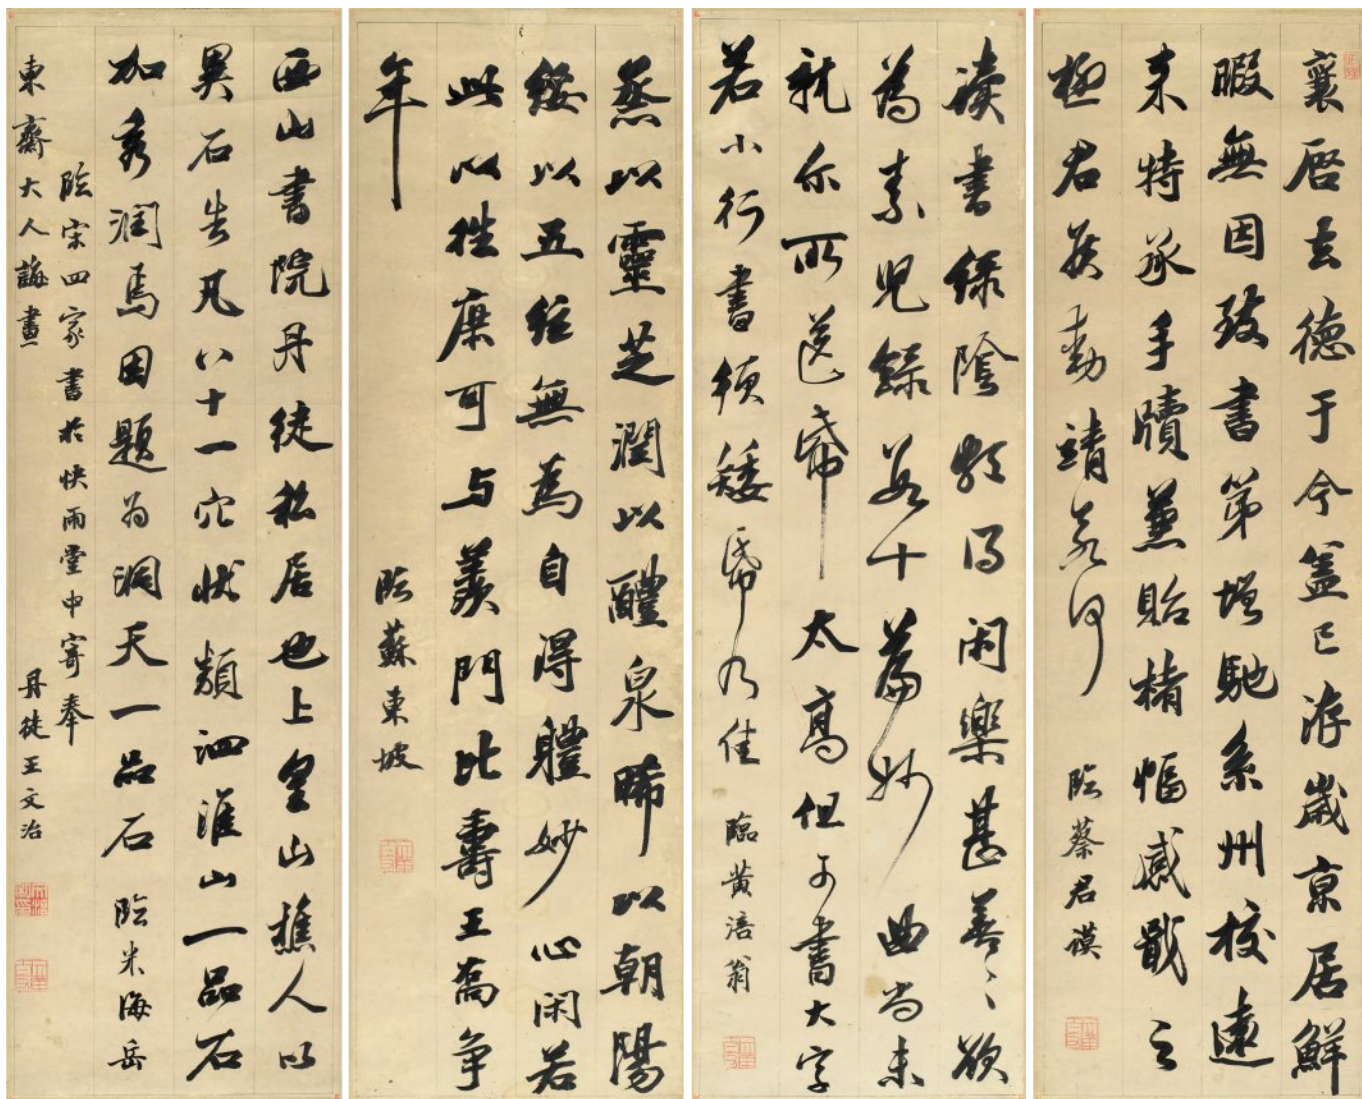 襄啓去德于今盖已洊歲京居鮮
暇無因致書第增馳系州校遠
来特承手牘兼貽楮幅感戢之
極君英動靖若何
臨蔡君谟
读書緑陰頗得闲樂甚善〻欲
為素兒録数十篇妙曲尚未
就尔所送帋太高但可書大字
若小行書須矮帋乃佳
臨黄涪翁
蒸以靈芝潤以醴泉晞以朝陽
綏以五絃無為自得體妙心闲若
此以往庶可与羡門比壽王喬争
年
臨蘇東坡
西山書院丹徒私居也上皇山樵人以
異石告凡八十一穴状類泗淮山一品石
加秀潤焉因題为洞天一品石
臨米海岳
臨宋四家書於快雨堂中寄奉
東齋大人誨畫
丹徒王文治